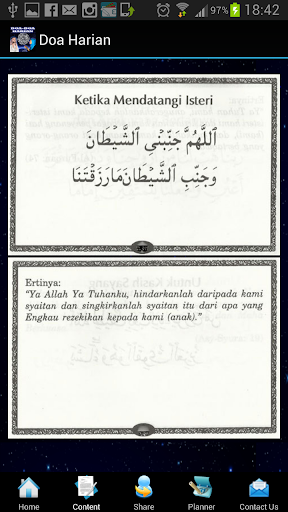 18:42
Doa Harian
Ketika Mendatangi Isteri
اَللّٰهُمَّ جَنِّبْنِي الشَّيْطَانَ
وَجَنِّبِ الشَّيْطَانَ مَارَزَقْتَنَا
Ertinya:
"Ya Allah Ya Tuhanku, hindarkanlah daripada kami
syaitan dan singkirkanlah syaitan itu dari apa yang
Engkau rezekikan kepada kami (anak)."
Home Content Share Planner Contact Us